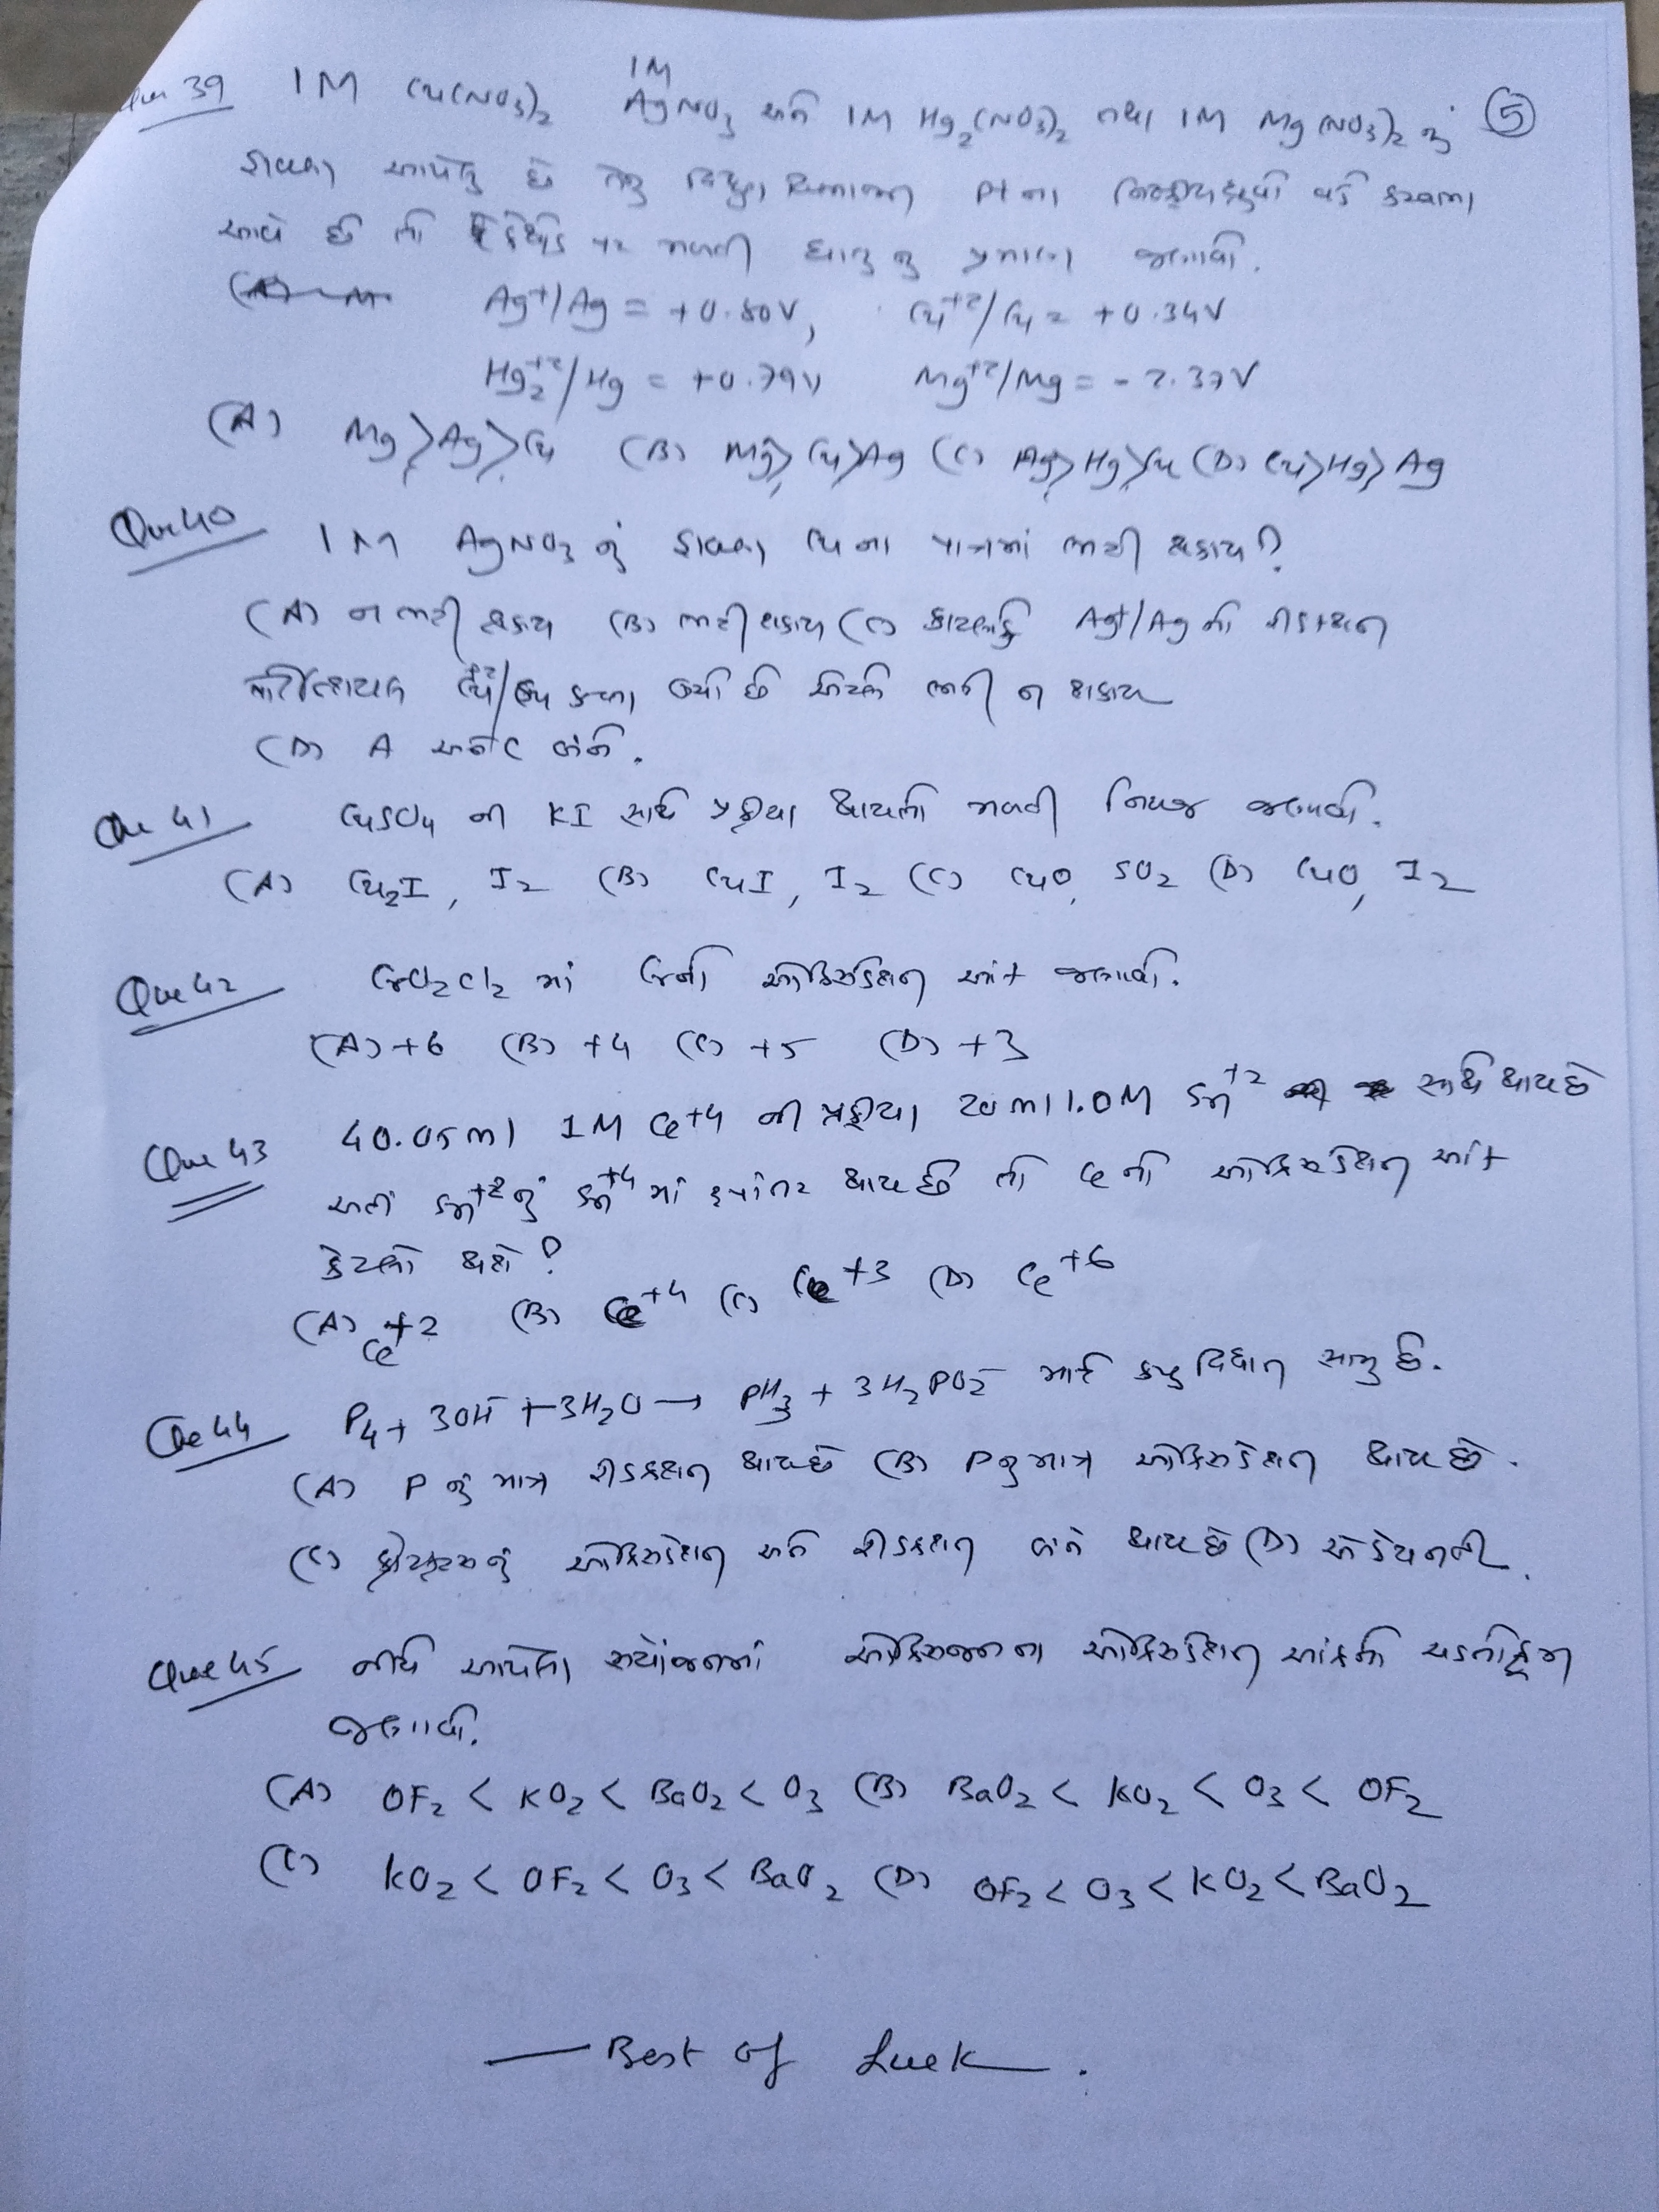 Que 39 1M Cu(NO3)2 1M AgNO3 અને 1M Hg2(NO3)2 તથા 1M Mg(NO3)2 નું ⑤
દ્રાવણ આપેલું છે તેનું વિદ્યુત વિભાજન Pt ના નિષ્ક્રીય ધ્રુવો વડે કરવામાં
આવે છે તો કેથોડ પર મળતી ધાતુનું પ્રમાણ જણાવો.
Ag+/Ag = +0.80V, Cu+2/Cu = +0.34V
Hg2+2/Hg = +0.79V Mg+2/Mg = -2.37V
(A) Mg>Ag>Cu (B) Mg>Cu>Ag (C) Ag>Hg>Cu (D) Cu>Hg>Ag
Que 40 1M AgNO3 નું દ્રાવણ Cu ના પાત્રમાં ભરી શકાય?
(A) ન ભરી શકાય (B) ભરી શકાય (C) કારણકે Ag+/Ag નો રીડક્શન
પોટેન્શીયલ Cu+2/Cu કરતા ઉંચો છે એટલે ભરી ન શકાય
(D) A અને C બંને.
Que 41 CuSO4 ની KI સાથે પ્રક્રીયા થાયતો મળતી નિપજ જણાવો.
(A) Cu2I, I2 (B) CuI, I2 (C) CuO, SO2 (D) CuO, I2
Que 42 CrO2Cl2 માં Crનો ઓક્સિડેશન આંક જણાવો.
(A) +6 (B) +4 (C) +5 (D) +3
Que 43 40.05ml 1M Ce+4 ની પ્રક્રીયા 20ml 1.0M Sn+2 સાથે થાય છે
અને Sn+2નું Sn+4 માં રૂપાંતર થાય છે તો Ce નો ઓક્સિડેશન આંક
કેટલો થશે?
(A) Ce+2 (B) Ce+4 (C) Ce+3 (D) Ce+6
Que 44 P4 + 3OH- + 3H2O → PH3 + 3H2PO2- માટે કયુ વિધાન સાચુ છે.
(A) P નું માત્ર રીડક્શન થાય છે (B) P નુ માત્ર ઓક્સિડેશન થાય છે.
(C) ફોસ્ફરસનું ઓક્સિડેશન અને રીડક્શન બંને થાય છે (D) એકેય નહી.
Que 45 નીચે આપેલા સંયોજનમાં ઓક્સિજનના ઓક્સિડેશન આંકનો ચડતોક્રમ
જણાવો.
(A) OF2 < KO2 < BaO2 < O3 (B) BaO2 < KO2 < O3 < OF2
(C) KO2 < OF2 < O3 < BaO2 (D) OF2 < O3 < KO2 < BaO2
— Best of Luck.